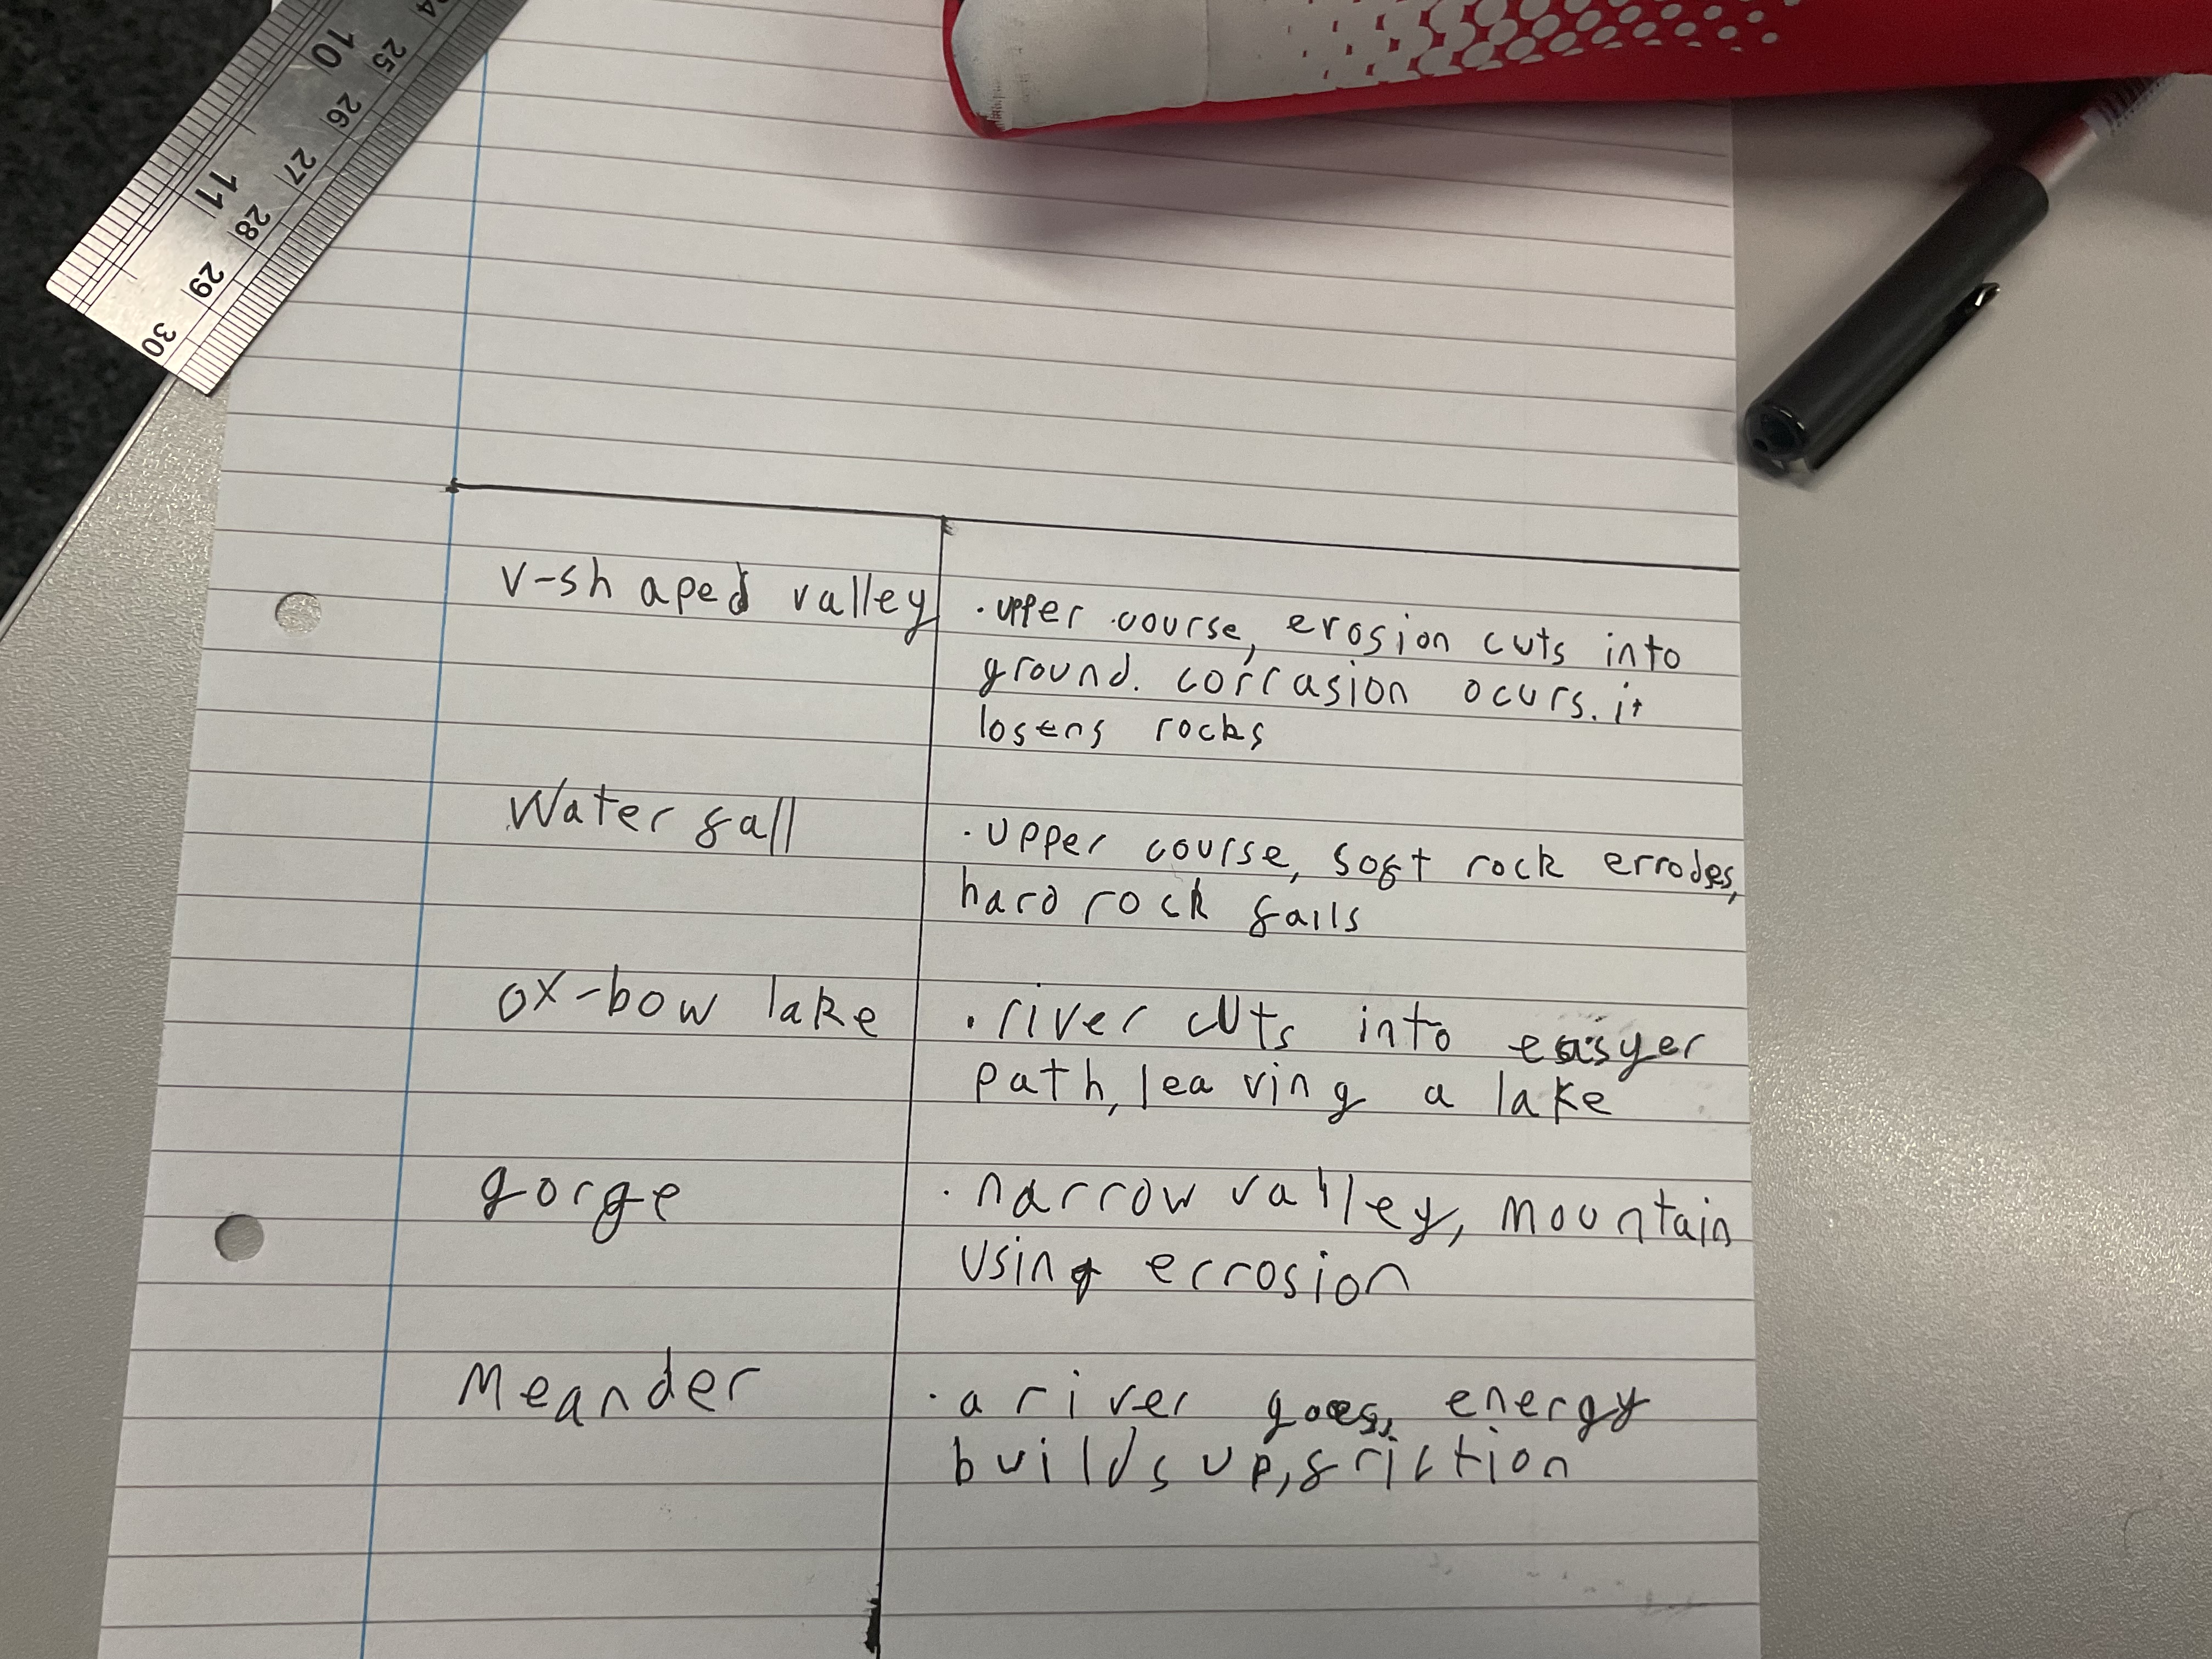 24
10 25
26
27
11 28
29
30
v-shaped valley
· upper course, erosion cuts into
ground. corrasion ocurs. it
losens rocks
Water fall
· upper course, soft rock errodes,
hard rock falls
ox-bow lake
· river cuts into easyer
path, leaving a lake
gorge
· narrow valley, mountain
using errosion
Meander
· a river goes, energy
builds up, friction